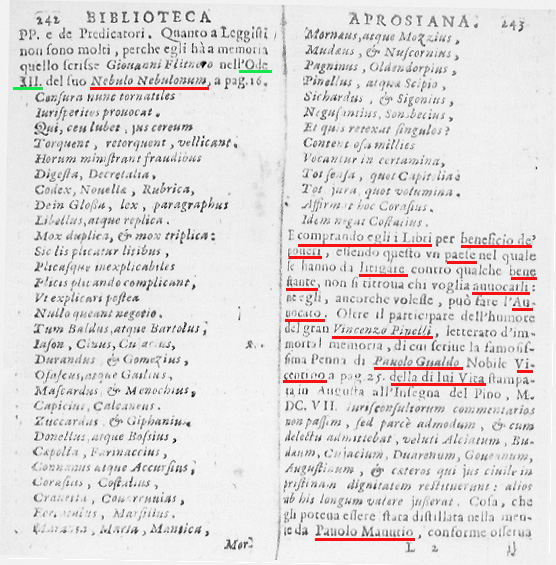 242 BIBLIOTECA
PP. e de Predicatori. Quanto a Leggisti
non sono molti, perche egli hà a memoria
quello scrisse Giovanni Flitnero nell'Ode
XII. del suo Nebulo Nebulonum, a pag.16.
Censura nunc tornatiles
Iurisperitos provocat.
Qui, ceu lubet, jus cereum
Torquent, retorquent, vellicant.
Horum ministrant fraudibus
Digesta, Decretalia,
Codex, Novellæ, Rubrica,
Dein Glossa, lex, paragraphus
Libellus, atque replica.
Mox duplica, & mox triplica:
Sic lis plicatur litibus,
Plicasque inexplicabiles
Plicis plicando complicant,
Vt explicari postea
Nullo queant negotio.
Tum Baldus, atque Bartolus,
Iason, Cinus, Cujacius,
Durandus & Gomezius,
Osascus, atque Gailius,
Mascardus & Menochius,
Capicius, Calcaneus.
Zuccardus & Giphanius
Donellus, atque Bossius,
Capolla, Farinaccius,
Connanus atque Accursius,
Corasius, Costalius,
Craveta, Covarruvias,
Ferrarius, Marsilius.
Maranta, Marta, Mantica,
Mor-
APROSIANA. 243
Mornaus, atque Mozzius,
Mudæus, & Nuscornius,
Paginus, Oldendorpius,
Pinellus, atque Scipio,
Sichardus, & Sigonius,
Negusantius, Sonsbecius,
Et quis retexat singulos?
Content osa millies
Vocantur in certamina,
Tot sensa, quot Capitalia:
Tot jura, quot volumina.
Affirmat hoc Corasius.
Idem negat Costalius.
E comprando egli i Libri per beneficio de'
poueri, essendo questo vn paese nel quale
se hanno da litigare contro qualche bene
stante, non si trroua chi voglia auuocarli:
ne egli, ancorche volesse, può fare l'Au-
uocato. Oltre il participare dell'humore
del gran Vincenzo Pinelli, letterato d'im-
mortal memoria, di cui scriue la famosis-
sima Penna di Pauolo Gualdo Nobile Vi-
centino a pag.25. della di lui Vita stampa-
ta in Augusta all'Insegna del Pino, M.
DC. VII. Iurisconsultorum commentarios
non passim, sed parcè admodum, & cum
delectu admittebat, veluti Alciatum, Bu-
dæum, Cujacium, Duarenum, Goueanum,
Augustinum, & cæteros qui jus ciuile in
pristinam dignitatem restituerunt: alios
ab his longum valere jusserat. Cosa, che
gli potena essere stata distillata nella men-
te da Pauolo Manutio, conforme osserua
L 2 il